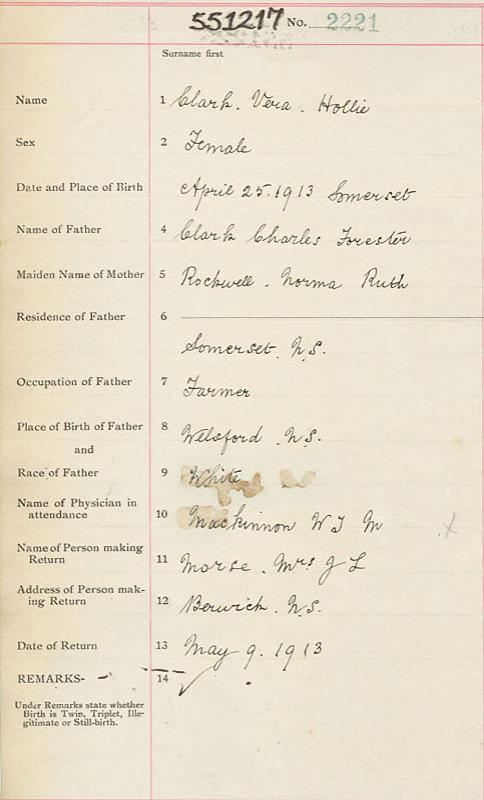 551217 No. 2221
Surname first
Name 1 Clark. Vera. Hollie
Sex 2 Female
Date and Place of Birth April 25. 1913 Somerset
Name of Father 4 Clark Charles Forester
Maiden Name of Mother 5 Rockwell. Norma Ruth
Residence of Father 6
Somerset. N.S.
Occupation of Father 7 Farmer
Place of Birth of Father 8 Welsford N.S.
and
Race of Father 9 White
Name of Physician in
attendance 10 MacKinnon W J M
Name of Person making
Return 11 Morse. Mrs J L
Address of Person mak-
ing Return 12 Berwick. N.S.
Date of Return 13 May 9. 1913
REMARKS- 14
Under Remarks state whether
Birth is Twin, Triplet, Ille-
gitimate or Still-birth.